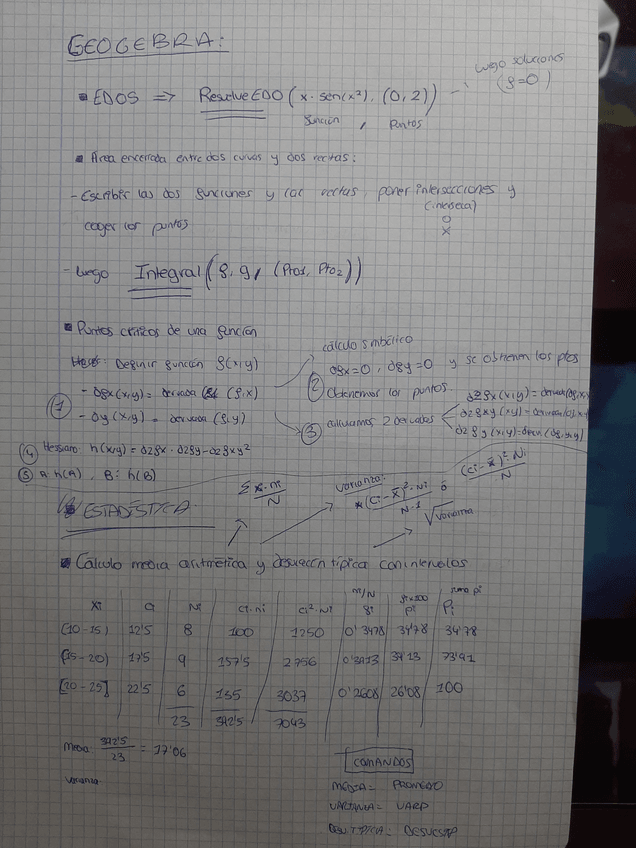 GEOGEBRA:
Luego soluciones
(f=0)
▪ EDOS => ResolveEDO (x·sen(x²), (0,2))
función , puntos
▪ Área encerrada entre dos curvas y dos rectas:
- Escribir las dos funciones y las rectas, poner intersecciones y
(interseca)
O
X
coger los puntos
- Luego Integral (f, g, (Pto1, Pto2))
▪ Puntos críticos de una función
Definir función f(x,y)
① - dfx(x,y) = derivada (f,x)
- dy(x,y) = derivada (f,y)
cálculo simbólico
dfx=0, dfy=0 y se obtienen los ptos
② Obtenemos los puntos
③ calculamos 2 derivadas
④ Hessiano: h(x,y) = d2fx · d2fy - d2fxy²
⑤ A: h(A), B: h(B)
ESTADÍSTICA
N
varianza:
(ci-x̄)²·Ni
N-1
ó
(ci-x̄)²·Ni
N
√varianza
▪ Cálculo media aritmética y desviación típica con intervalos
xi Ci Ni ci·ni ci²·Ni ni/N fi fi×100 pi suma pi Pi
[10-15) 12'5 8 100 1250 0'3478 34'78 34'78
[15-20) 17'5 9 157'5 2756 0'3913 39'13 73'91
[20-25] 22'5 6 135 3037 0'2608 26'08 100
23 392'5 7043
media 392'5/23 = 17'06
varianza.
COMANDOS
MEDIA = PROMEDIO
VARIANZA = VARP
DESV TIPICA = DESVESTP